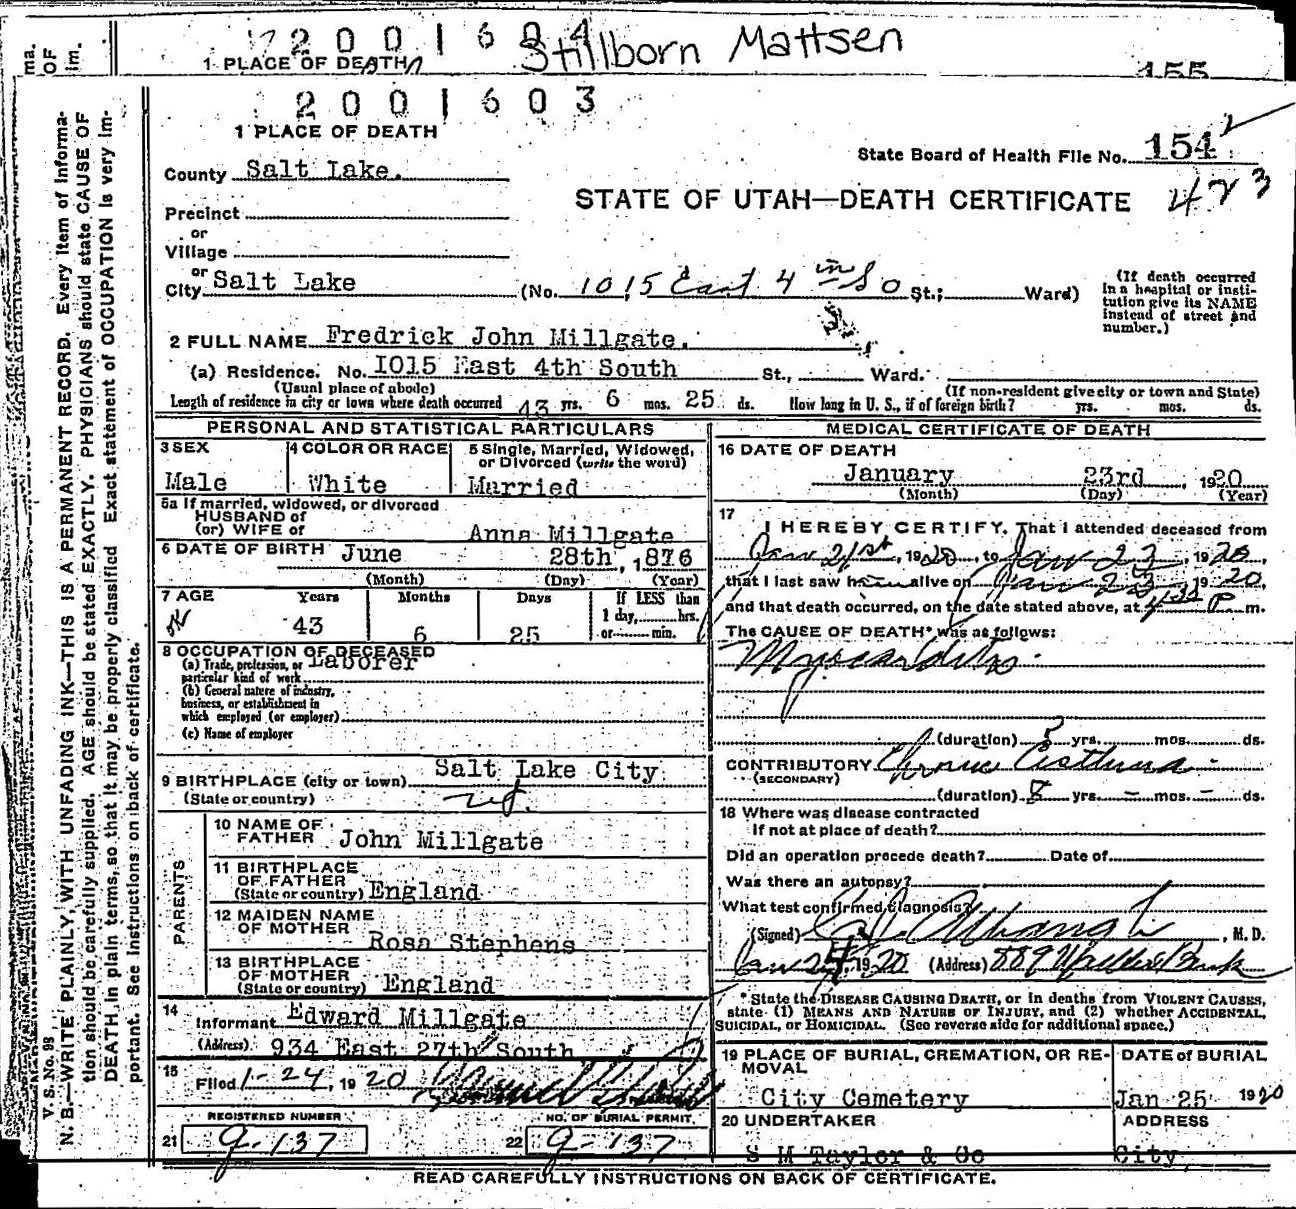 2001604 Stillborn Mattsen
1 PLACE OF DEATH
155
ma.
OF
im.
2001603
1 PLACE OF DEATH
State Board of Health File No. 154 2
County Salt Lake.
STATE OF UTAH—DEATH CERTIFICATE 423
Precinct
or
Village
or
City Salt Lake (No. 1015 East 4 So St.; Ward)
(If death occurred in a hospital or institution give its NAME instead of street and number.)
2 FULL NAME Fredrick John Millgate.
(a) Residence. No. I015 East 4th South St., Ward.
(Usual place of abode) (If non-resident give city or town and State)
Length of residence in city or town where death occurred 43 yrs. 6 mos. 25 ds. How long in U. S., if of foreign birth? yrs. mos. ds.
PERSONAL AND STATISTICAL PARTICULARS
3 SEX 4 COLOR OR RACE 5 Single, Married, Widowed, or Divorced (write the word)
Male White Married
5a If married, widowed, or divorced
HUSBAND of
(or) WIFE of Anna Millgate
6 DATE OF BIRTH June 28th, 1876
(Month) (Day) (Year)
7 AGE Years Months Days If LESS than
1 day, hrs.
or min.
OK 43 6 25
8 OCCUPATION OF DECEASED
(a) Trade, profession, or particular kind of work Laborer
(b) General nature of industry,
business, or establishment in
which employed (or employer)
(c) Name of employer
9 BIRTHPLACE (city or town) Salt Lake City
(State or country) Ut.
PARENTS
10 NAME OF FATHER John Millgate
11 BIRTHPLACE OF FATHER
(State or country) England
12 MAIDEN NAME OF MOTHER Rosa Stephens
13 BIRTHPLACE OF MOTHER
(State or country) England
14
Informant Edward Millgate
(Address) 934 East 27th South
15
Filed 1-24, 1920
REGISTERED NUMBER NO. OF BURIAL PERMIT
21 9-137 22 9-137
MEDICAL CERTIFICATE OF DEATH
16 DATE OF DEATH
January 23rd, 1920
(Month) (Day) (Year)
17
I HEREBY CERTIFY, That I attended deceased from
Jan 21st, 1920, to Jan 23, 1920,
that I last saw him alive on Jan 23, 1920,
and that death occurred, on the date stated above, at P m.
The CAUSE OF DEATH* was as follows:
Myocarditis.
(duration) yrs. mos. ds.
CONTRIBUTORY Chronic Asthma
(SECONDARY)
(duration) 8 yrs. – mos. – ds.
18 Where was disease contracted
if not at place of death?
Did an operation precede death? Date of
Was there an autopsy?
What test confirmed diagnosis?
(Signed) , M. D.
Jan 24, 1920 (Address) 889
* State the DISEASE CAUSING DEATH, or in deaths from VIOLENT CAUSES,
state (1) MEANS AND NATURE OF INJURY, and (2) whether ACCIDENTAL,
SUICIDAL, or HOMICIDAL. (See reverse side for additional space.)
19 PLACE OF BURIAL, CREMATION, OR REMOVAL DATE of BURIAL
City Cemetery Jan 25 1920
20 UNDERTAKER ADDRESS
S M Taylor & Co City
READ CAREFULLY INSTRUCTIONS ON BACK OF CERTIFICATE.
V. S. No. 98
N. B.—WRITE PLAINLY, WITH UNFADING INK—THIS IS A PERMANENT RECORD. Every item of informa-
tion should be carefully supplied. AGE should be stated EXACTLY. PHYSICIANS should state CAUSE OF
DEATH in plain terms, so that it may be properly classified. Exact statement of OCCUPATION is very im-
portant. See instructions on back of certificate.